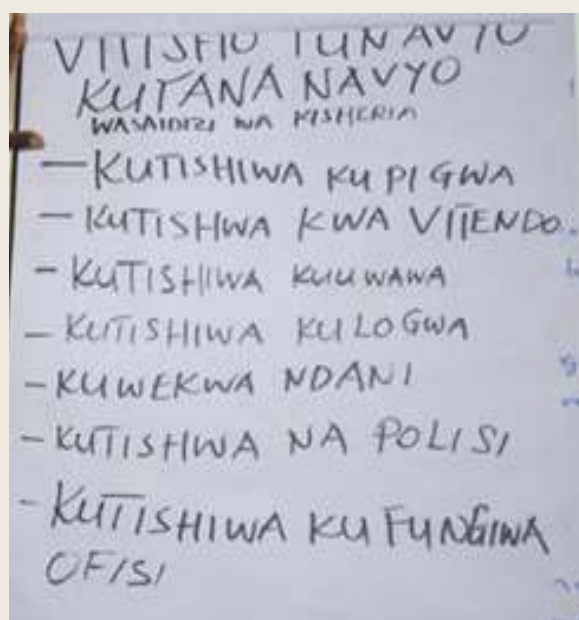 VITISHO TUNAVYO
KUTANA NAVYO
WASAIDIZI WA KISHERIA
— KUTISHIWA KUPIGWA
— KUTISHWA KWA VITENDO
- KUTISHIWA KUUWAWA
- KUTISHIWA KULOGWA
- KUWEKWA NDANI
- KUTISHWA NA POLISI
- KUTISHIWA KUFUNGIWA
OFISI